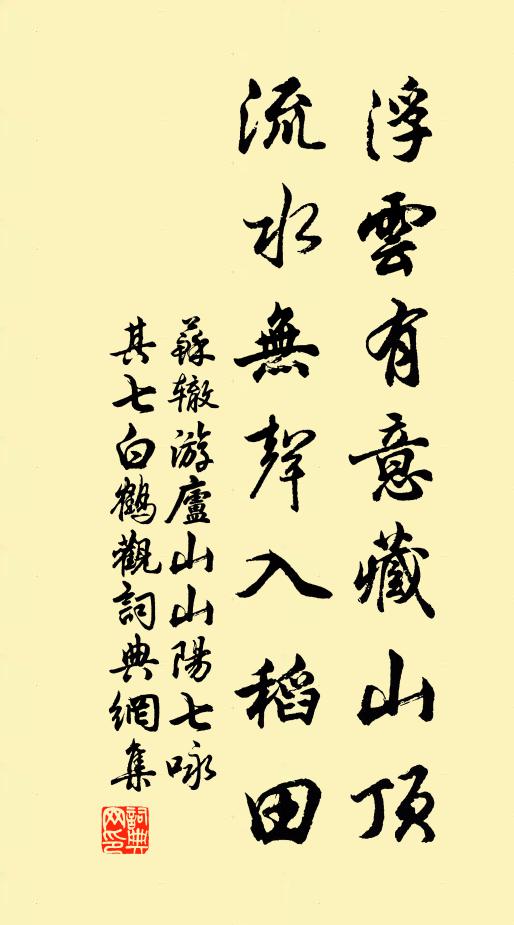 浮雲有意藏山頂
流水無聲入稻田
蘇轍游廬山山陽七咏
其七白鶴觀詞典網集
詞典
网印